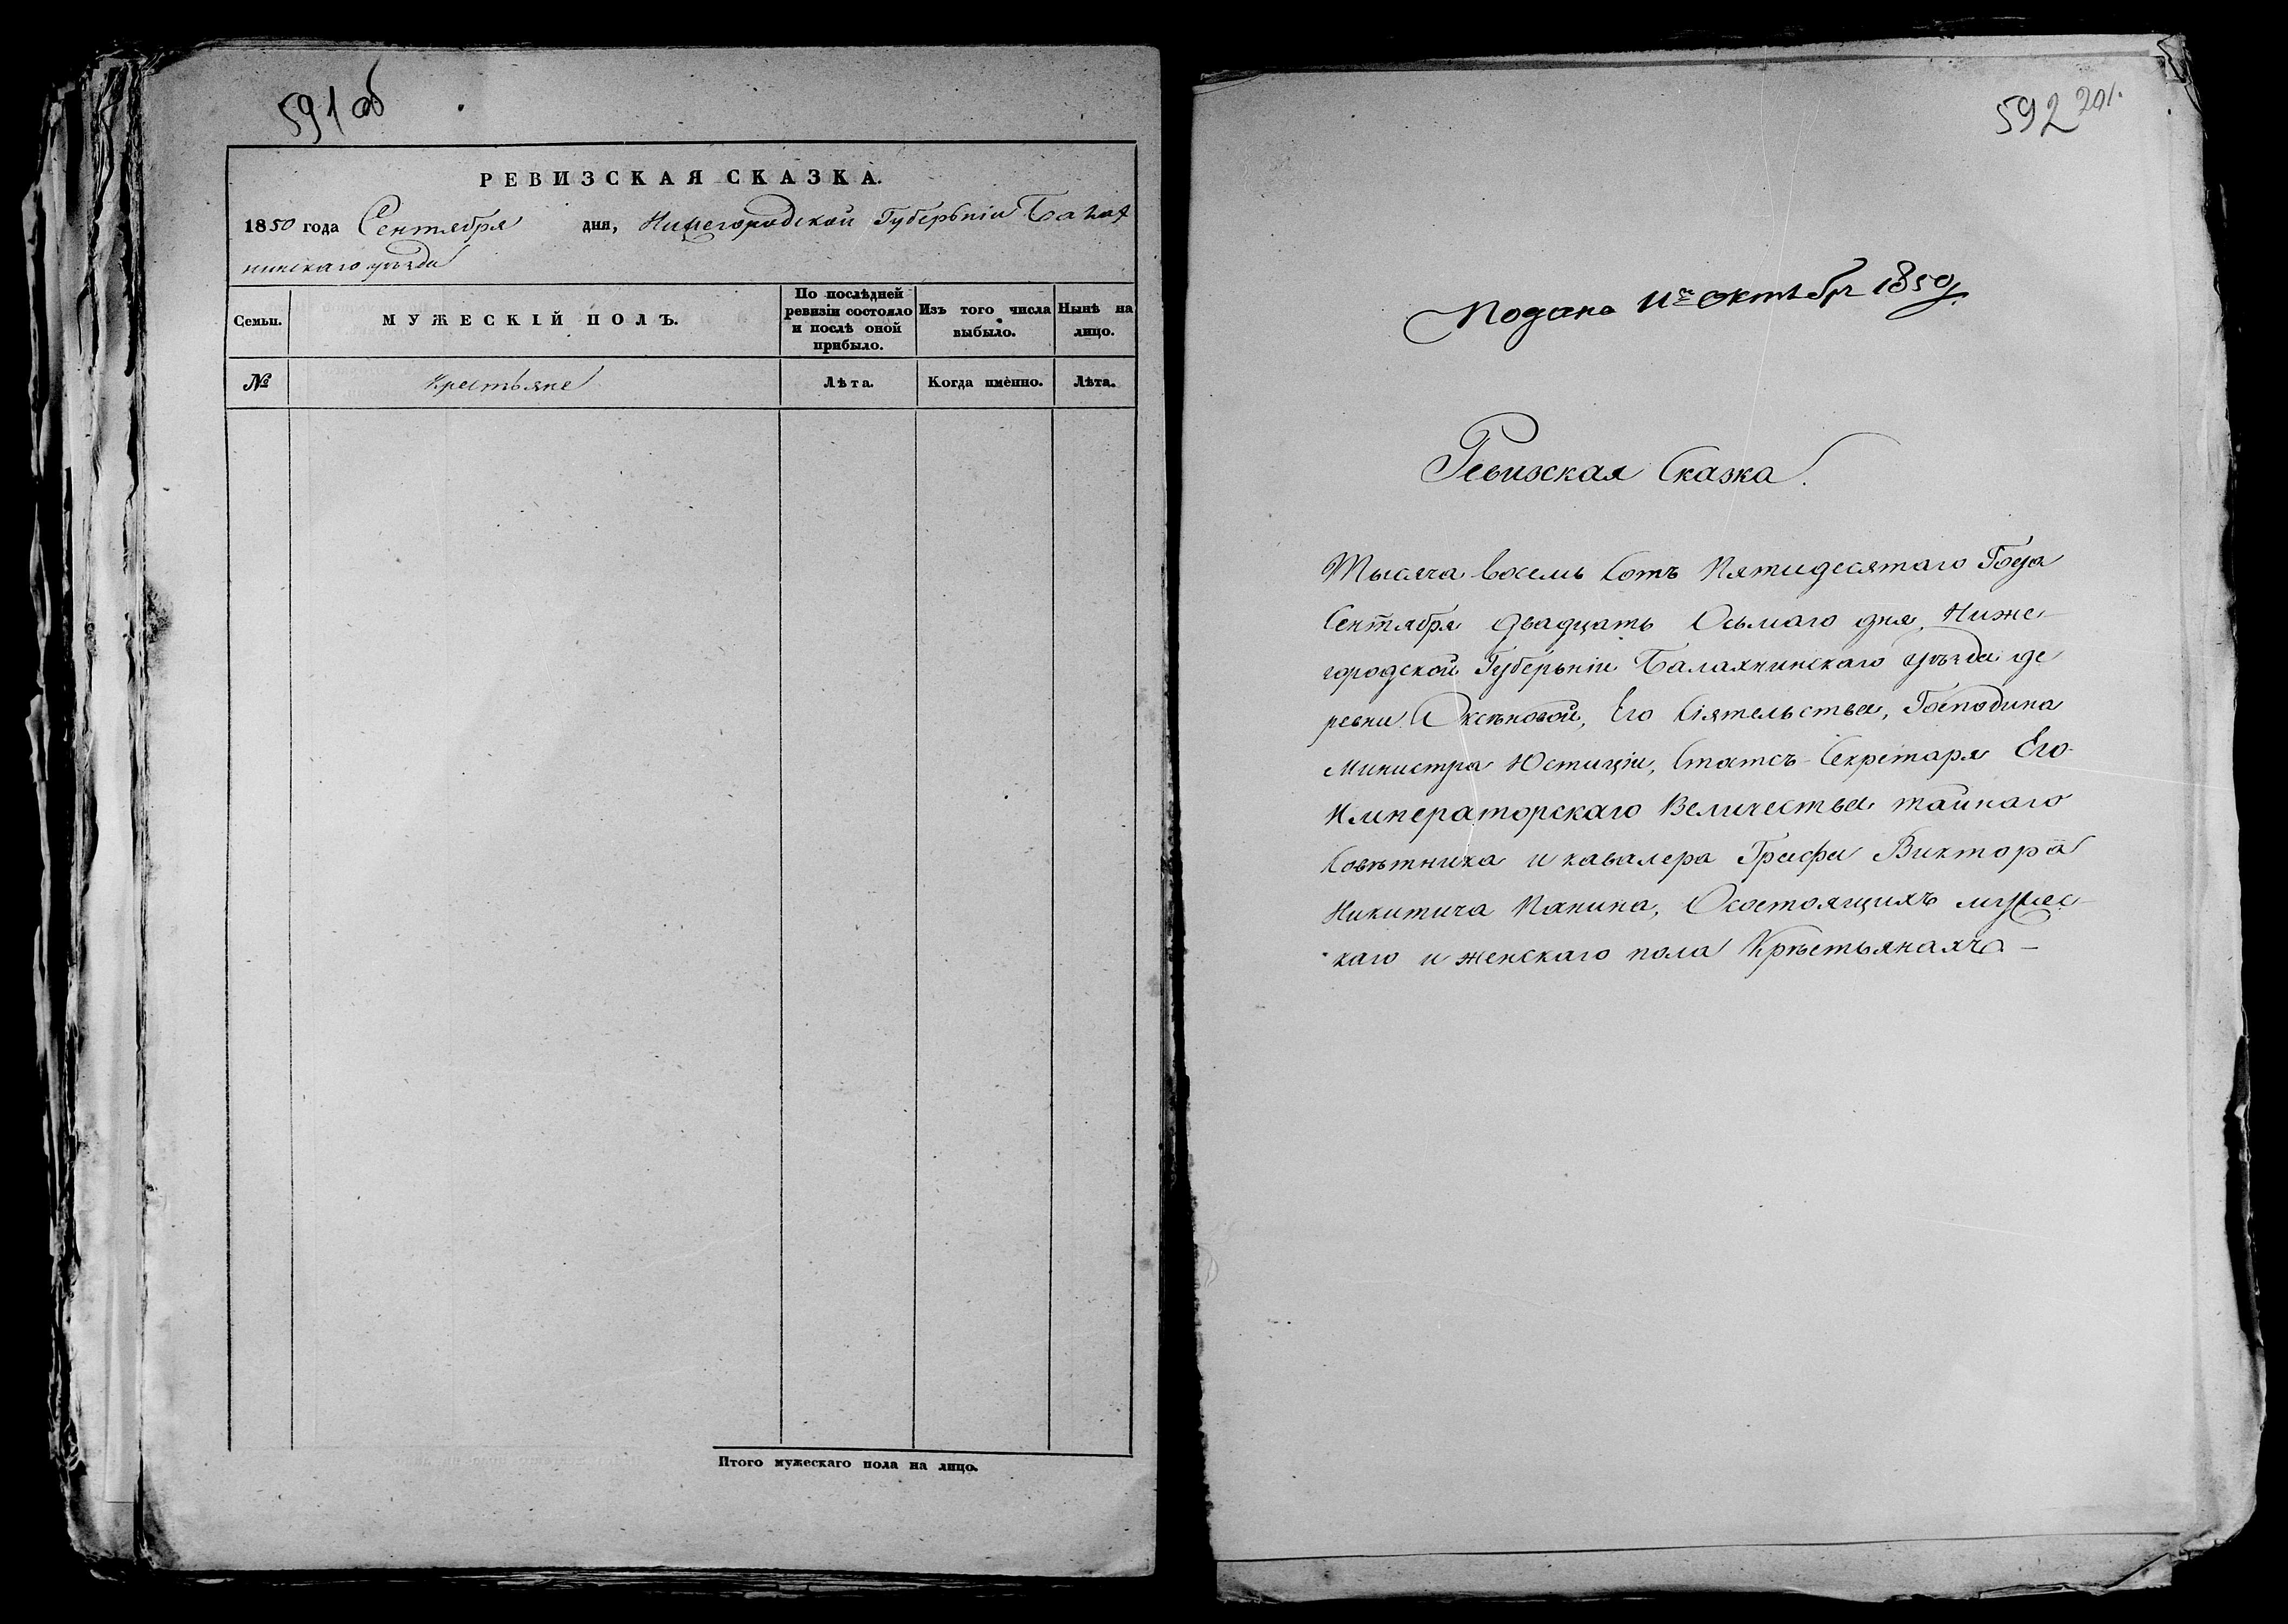 591 об
РЕВИЗСКАЯ СКАЗКА.
1850 года Сентября дня, Нижегородской Губерьніи Балах
нинскаго уѣзда
Семьи.
МУЖЕСКІЙ ПОЛЪ.
По послѣдней
ревизіи состояло
и послѣ оной
прибыло.
Изъ того числа
выбыло.
Нынѣ на
лицо.
№
Крестьяне
Лѣта.
Когда имѐнно.
Лѣта.
Итого мужескаго пола на лицо.
592 201.
Подана 11го Октября 1850
Ревизская Сказка.
Тысяча восемь сотъ Пятидесятаго Года
Сентября двадцать Осьмаго дня, Ниже-
городской Губерьніи Балахнинскаго уѣзда де
ревни Оксѣновой, Его Сіятельства, Господина
Министра Юстиціи, Статсъ-Секретаря Его
Императорскаго Величества тайнаго
Совѣтника и кавалера Графа Виктора
Никитича Панина, Осостоящихъ мужес-
каго и женскаго пола Крѣстьянахъ –